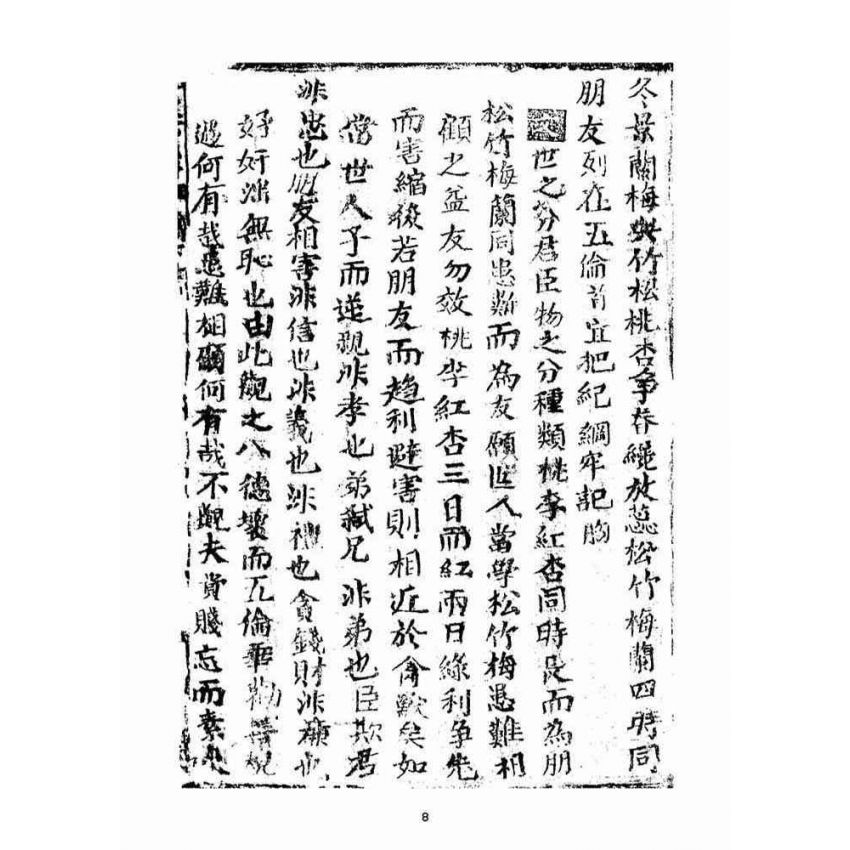 冬景蘭梅與竹松桃杏爭春繞放蕊松竹梅蘭四時同
朋友列在五倫首宜把紀綱牢記胸
世之分君臣物之分種類桃李紅杏同時長而為朋
松竹梅蘭同患難而為友願世人當學松竹梅患難相
顧之益友勿效桃李紅杏三日而紅兩日綠利爭先
而害縮後若朋友而趨利避害則相近於禽獸矣如
當世人子而逆親非孝也弟弒兄非弟也臣欺君
非忠也朋友相害非信也非義也非禮也貪錢財非廉也
好奸淫無恥也由此觀之八德壞而五倫
過何有哉患難相顧何有哉不觀夫貴賤忘而素
8